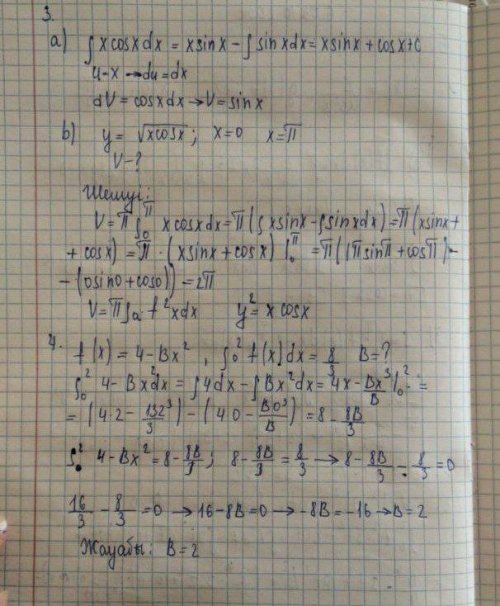 3.
a) ∫ x cos x dx = x sin x - ∫ sin x dx = x sin x + cos x + C
u-x → du = dx
dV = cos x dx → V = sin x
b) y = √x cos x ; x=0 x=π
V-?
Шешуі:
V = π ∫₀^π x cos x dx = π (∫ x sin x - ∫ sin x dx) = π (x sin x +
+ cos x) = π · (x sin x + cos x) ∫₀^π = π ((π sin π + cos π) -
- (0 sin 0 + cos 0)) = 2π
V = π ∫a f² x dx y² = x cos x
4. f(x) = 4 - Bx² , ∫₀² f(x) dx = 8/3 B=?
∫₀² 4 - Bx² dx = ∫ 4dx - ∫ Bx² dx = 4x - Bx³/B |₀² =
= (4·2 - B2³/3) - (4·0 - B0³/B) = 8 - 8B/3
∫₀² 4 - Bx² = 8 - 8B/3 ; 8 - 8B/3 = 8/3 → 8 - 8B/3 - 8/3 = 0
16/3 - 8/3 = 0 → 16 - 8B = 0 → -8B = -16 → B = 2
Жауабы: B = 2